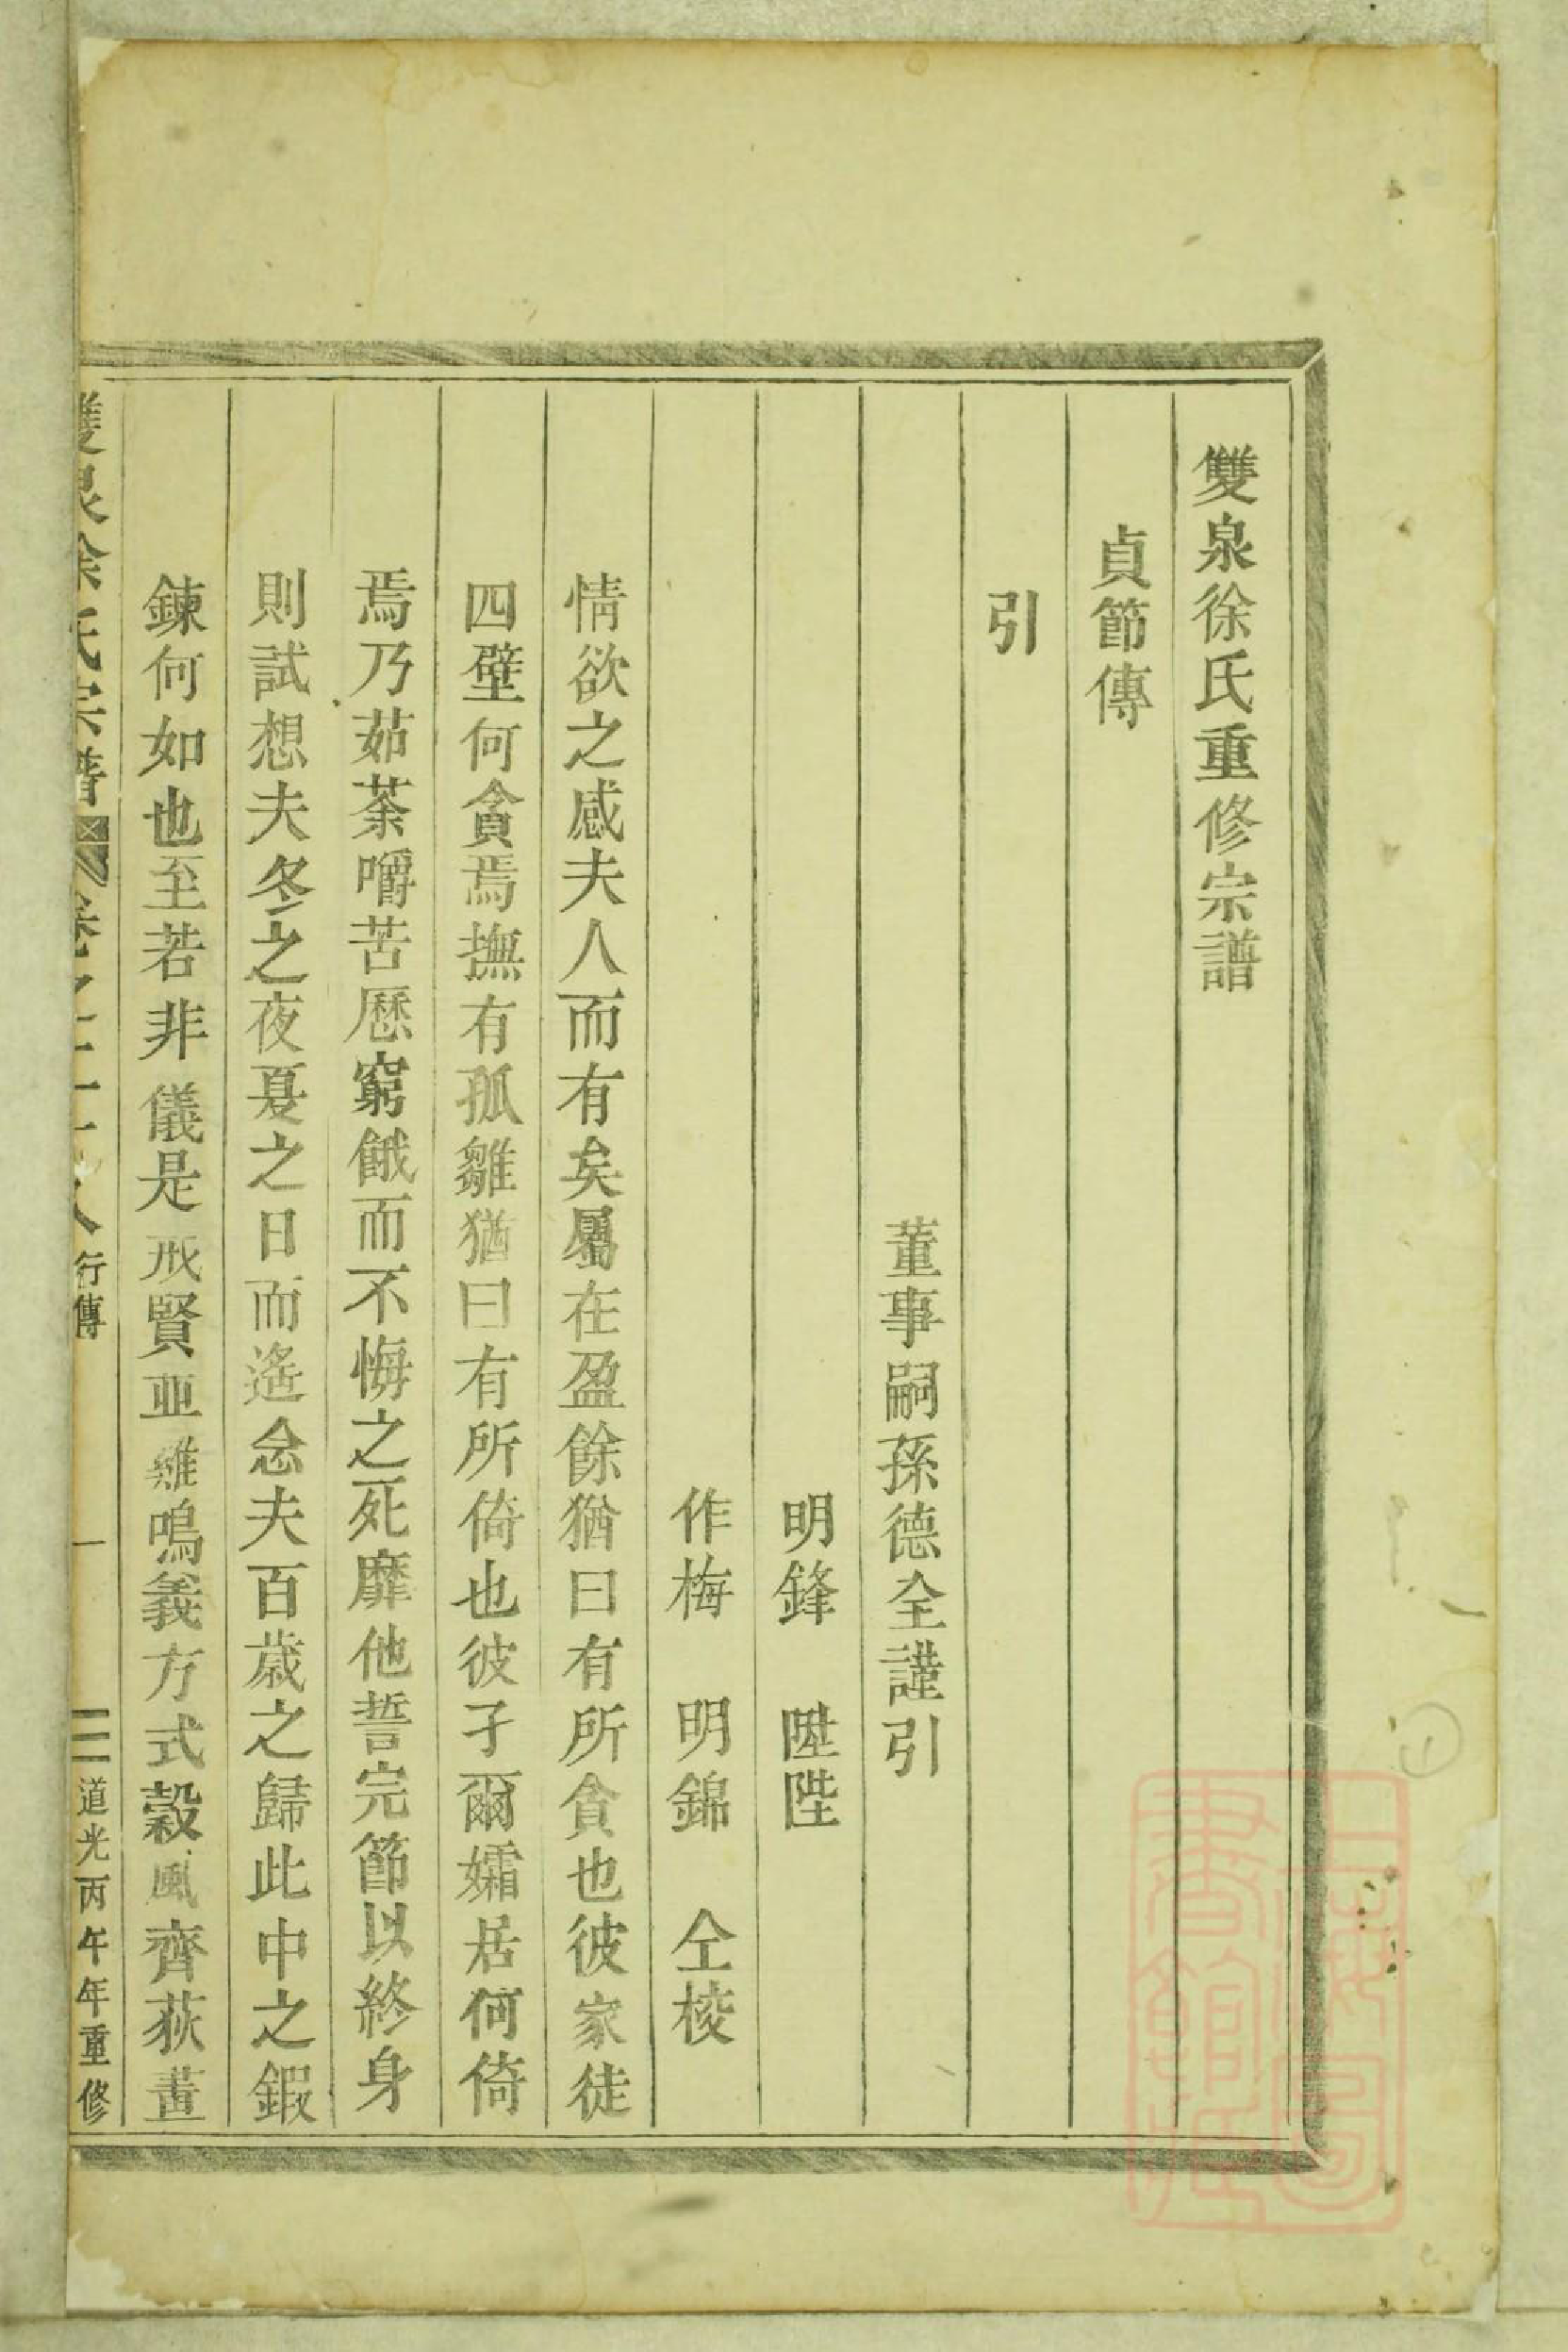 雙泉徐氏重修宗譜
貞節傳
引
董事嗣孫德全謹引
明鋒 陞陛
作梅 明錦 仝梭
情欲之感夫人而有矣屬在盈餘猶曰有所貪也彼家徒
四壁何貪焉撫有孤雛猶曰有所倚也彼孑爾孀居何倚
焉乃茹荼嚼苦歷窮餓而不悔之死靡他誓完節以終身
則試想夫冬之夜夏之日而遙念夫百歲之歸此中之鍜
鍊何如也至若非儀是戒賢亚雞鳴義方式穀風齊荻畫
雙泉徐氏宗譜 卷之 行傳 一 道光丙午年重修
上海圖書館藏